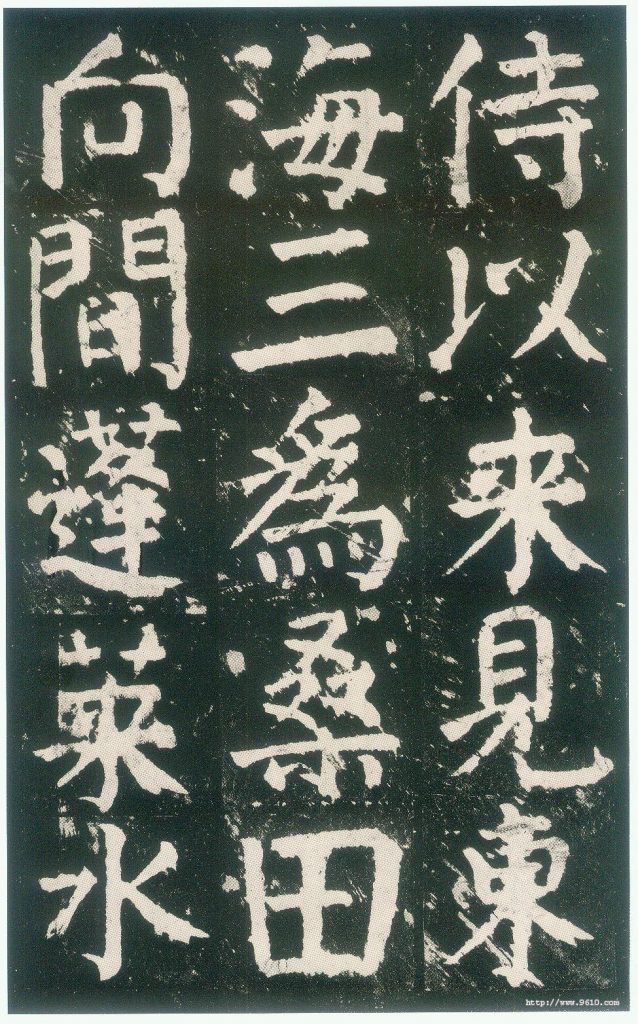 侍以来見東
海三為桑田
向間蓬萊水
http://www.9610.com